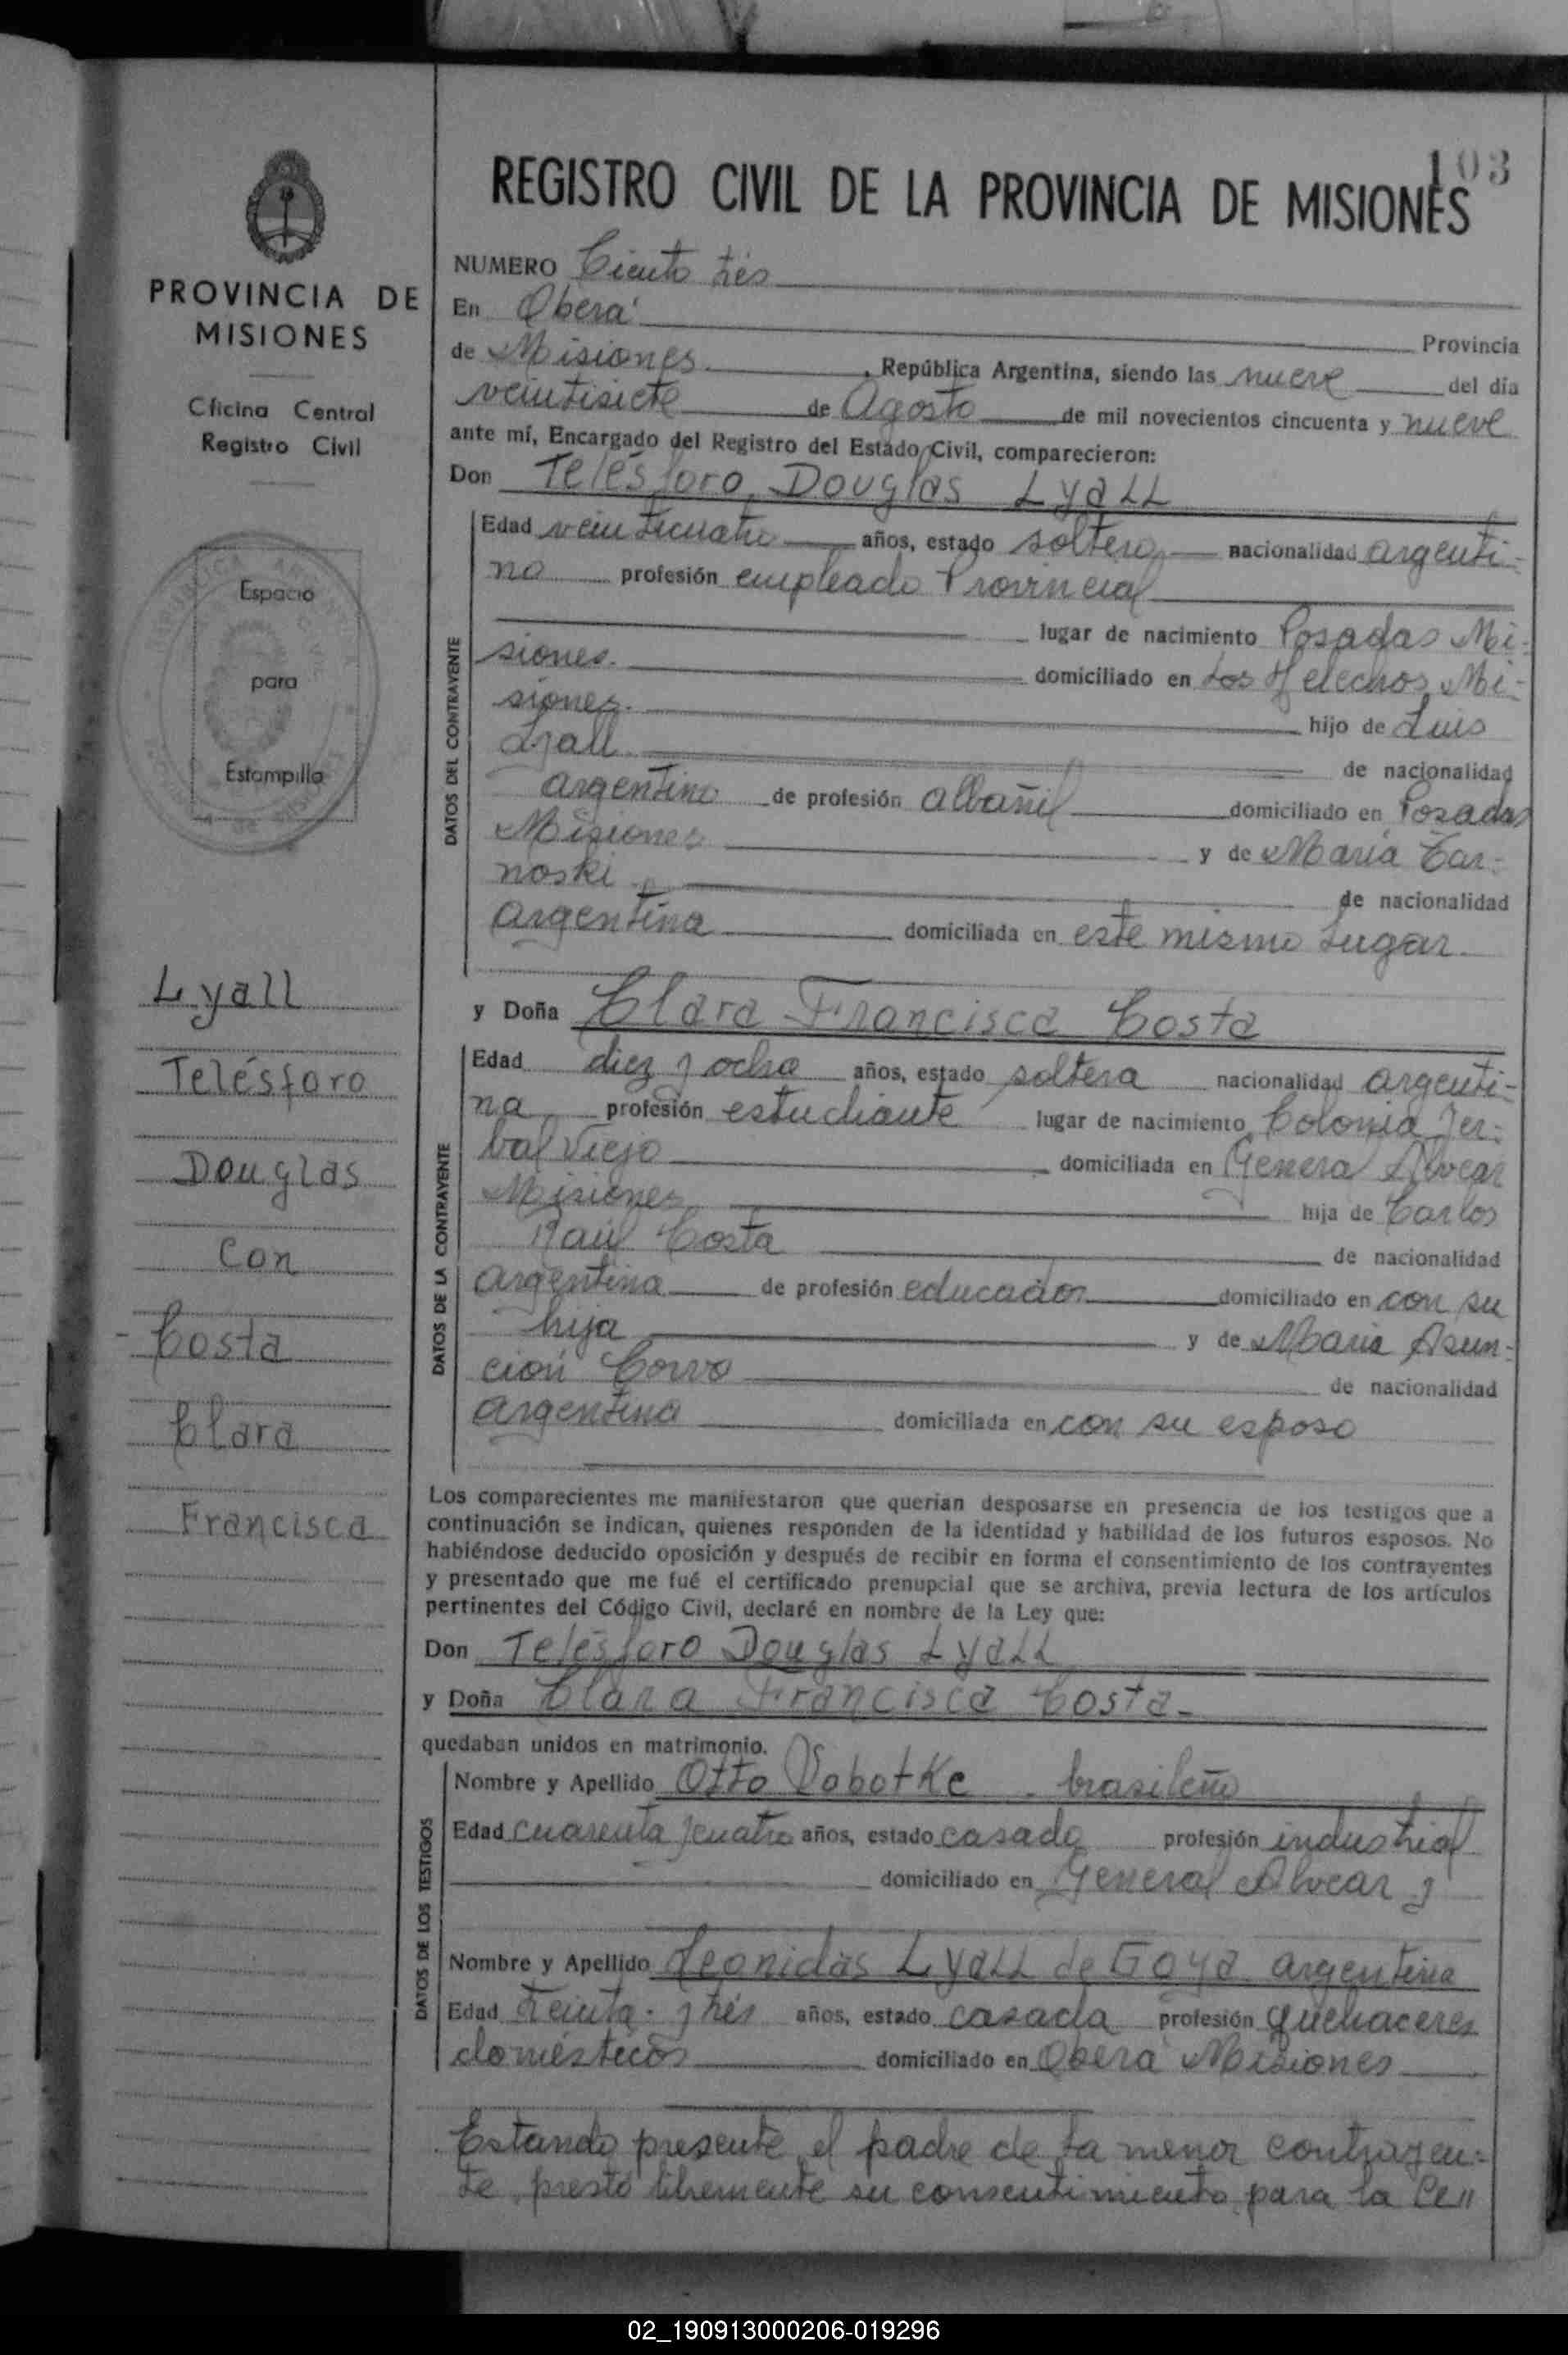 103
REGISTRO CIVIL DE LA PROVINCIA DE MISIONES
PROVINCIA DE
MISIONES
Oficina Central
Registro Civil
Espacio
para
Estampilla
Lyall
Telésforo
Douglas
Con
Costa
Clara
Francisca
NUMERO Ciento trés
En Oberá Provincia
de Misiones, República Argentina, siendo las nueve del día
veintisiete de Agosto de mil novecientos cincuenta y nueve
ante mí, Encargado del Registro del Estado Civil, comparecieron:
Don Telésforo Douglas Lyall
DATOS DEL CONTRAYENTE
Edad veinticuatro años, estado soltero nacionalidad argenti-
no profesión empleado Provincial
lugar de nacimiento Posadas Mi-
siones. domiciliado en Los Helechos Mi-
siones. hijo de Luis
Lyall de nacionalidad
argentino de profesión albañil domiciliado en Posadas
Misiones y de María Tar-
noski de nacionalidad
argentina domiciliada en este mismo Lugar
y Doña Clara Francisca Costa
DATOS DE LA CONTRAYENTE
Edad diez y ocho años, estado soltera nacionalidad argenti-
na profesión estudiante lugar de nacimiento Colonia Yer-
bal Viejo domiciliada en General Alvear
Misiones hija de Carlos
Raúl Costa de nacionalidad
argentina de profesión educador domiciliado en con su
hija y de María Asun-
ción Corvo de nacionalidad
argentina domiciliada en con su esposo
Los comparecientes me manifestaron que querían desposarse en presencia de los testigos que a
continuación se indican, quienes responden de la identidad y habilidad de los futuros esposos. No
habiéndose deducido oposición y después de recibir en forma el consentimiento de los contrayentes
y presentado que me fué el certificado prenupcial que se archiva, previa lectura de los artículos
pertinentes del Código Civil, declaré en nombre de la Ley que:
Don Telésforo Douglas Lyall
y Doña Clara Francisca Costa-
quedaban unidos en matrimonio.
DATOS DE LOS TESTIGOS
Nombre y Apellido Otto brasileño
Edad cuarenta y cuatro años, estado casado profesión industrial
domiciliado en General Alvear y
Nombre y Apellido Leonidas Lyall de Goya argentina
Edad treinta y trés años, estado casada profesión quehaceres
domésticos domiciliado en Oberá Misiones
Estando presente el padre de la menor contrayen-
te prestó libremente su consentimiento para la ce"
02_190913000206-019296